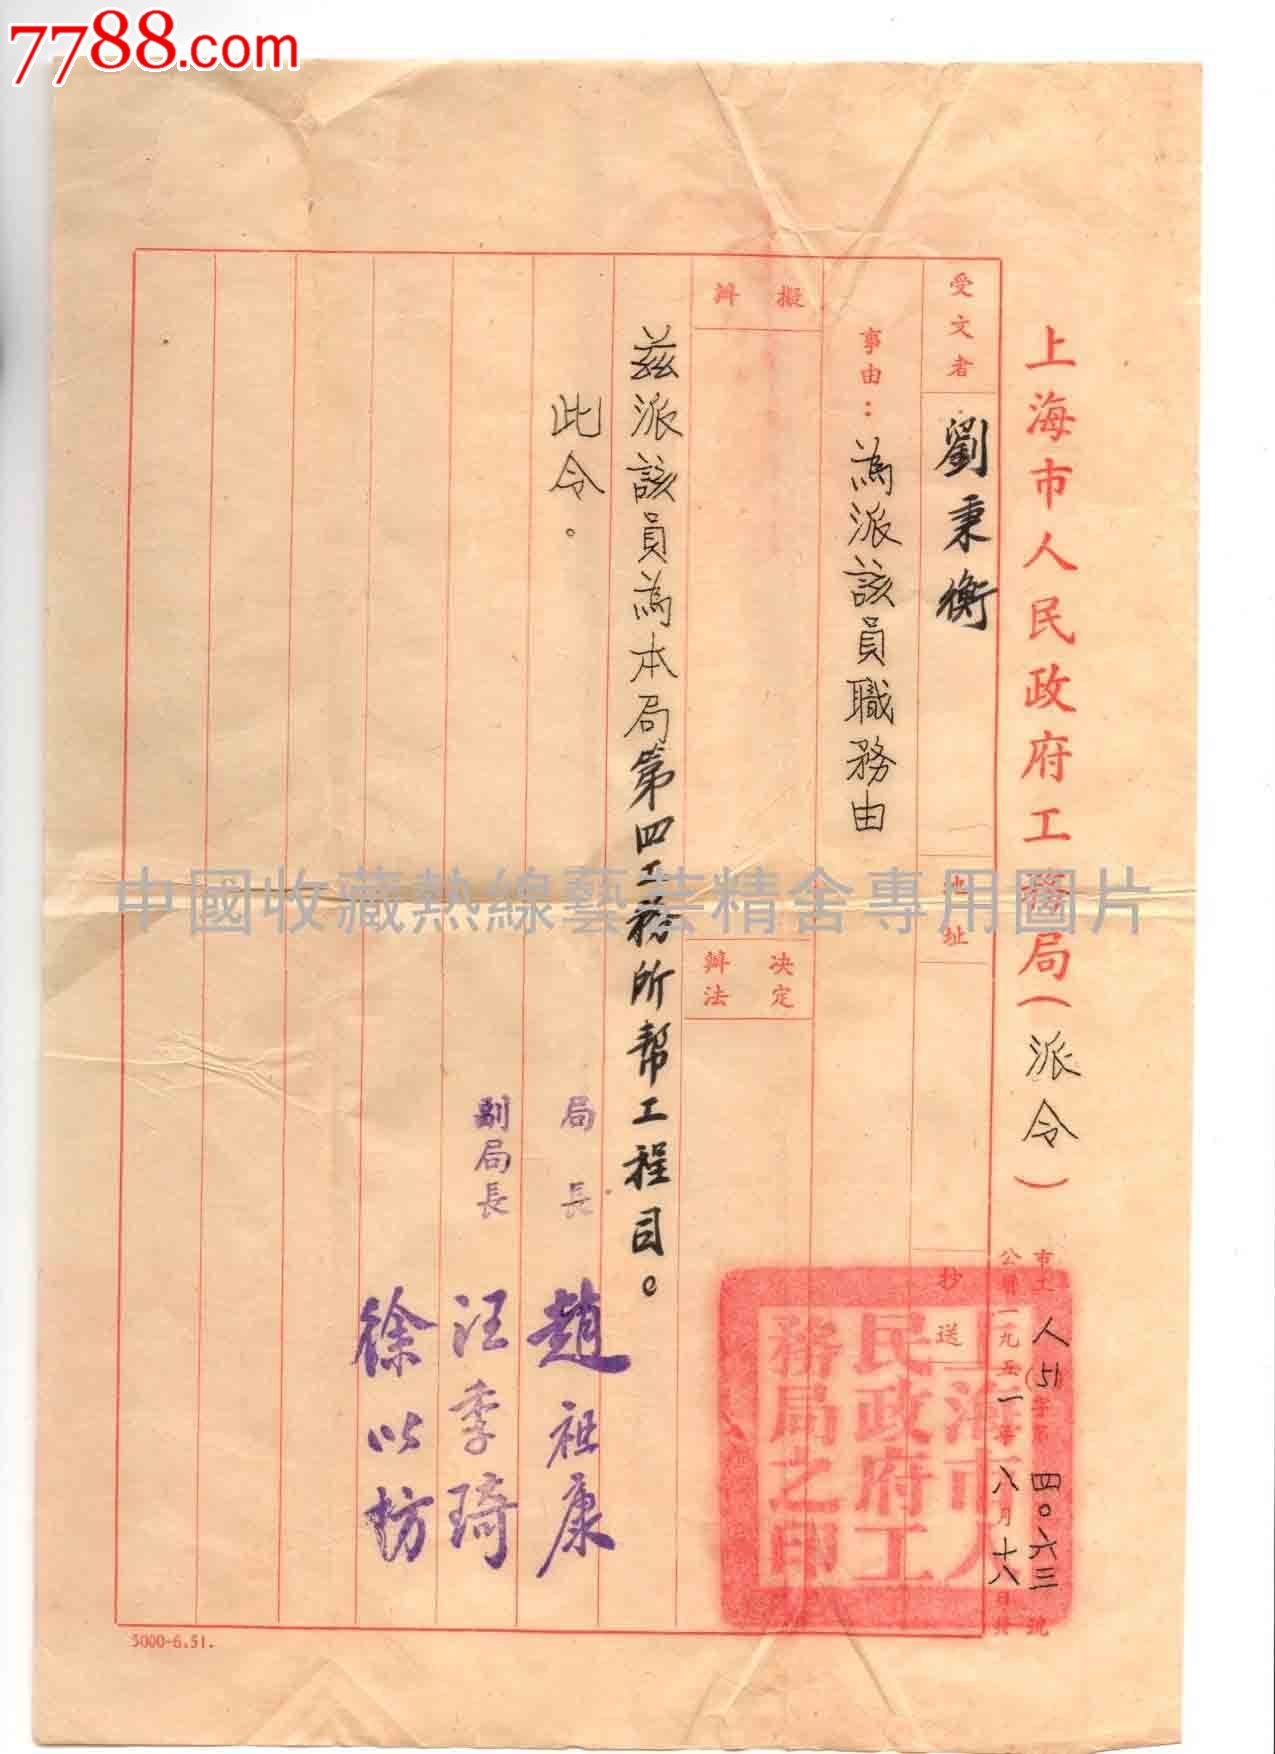 7788.com
上海市人民政府工務局(派令)
市工人(51)字第四〇六三號
公曆一九五一年八月十八日發
受文者
劉秉衡
地址
抄送
事由：為派該員職務由
擬辦
決定辦法
茲派該員為本局第四工務所幫工程司。
此令。
局長 趙祖康
副局長 汪季琦
徐以枋
上海市人民政府工務局之印
中國收藏熱線藝芸精舍專用圖片
5000-6.51.